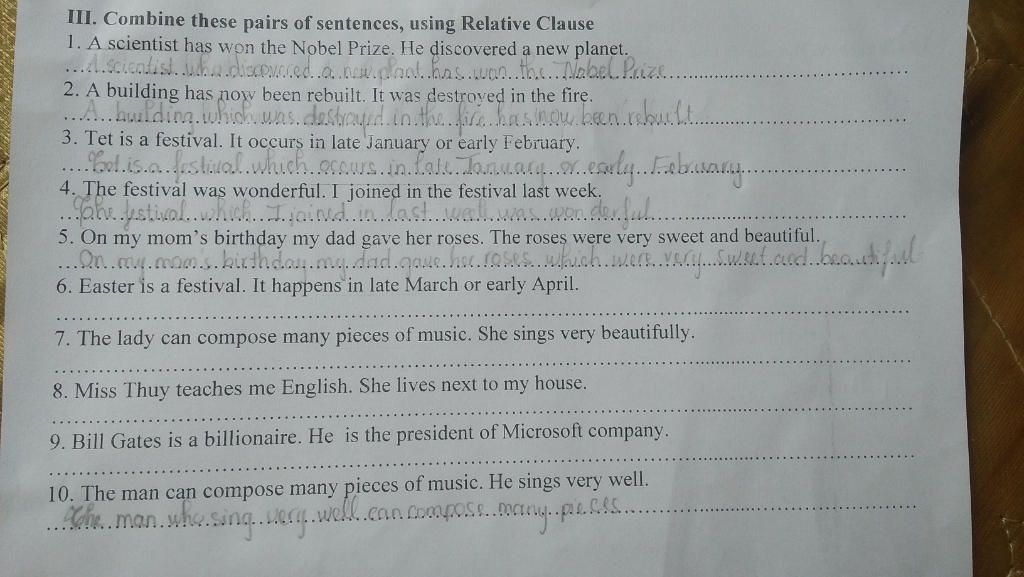 III. Combine these pairs of sentences, using Relative Clause
1. A scientist has won the Nobel Prize. He discovered a new planet.
A scientist who discovered a new plant has won the Nobel Prize
2. A building has now been rebuilt. It was destroyed in the fire.
A building which was destroyed in the fire has now been rebuilt
3. Tet is a festival. It occurs in late January or early February.
Tet is a festival which occurs in late January or early February
4. The festival was wonderful. I joined in the festival last week.
The festival which I joined in last week was wonderful
5. On my mom's birthday my dad gave her roses. The roses were very sweet and beautiful.
On my mom's birthday my dad gave her roses which were very sweet and beautiful
6. Easter is a festival. It happens in late March or early April.
7. The lady can compose many pieces of music. She sings very beautifully.
8. Miss Thuy teaches me English. She lives next to my house.
9. Bill Gates is a billionaire. He is the president of Microsoft company.
10. The man can compose many pieces of music. He sings very well.
The man who sing very well can compose many pieces